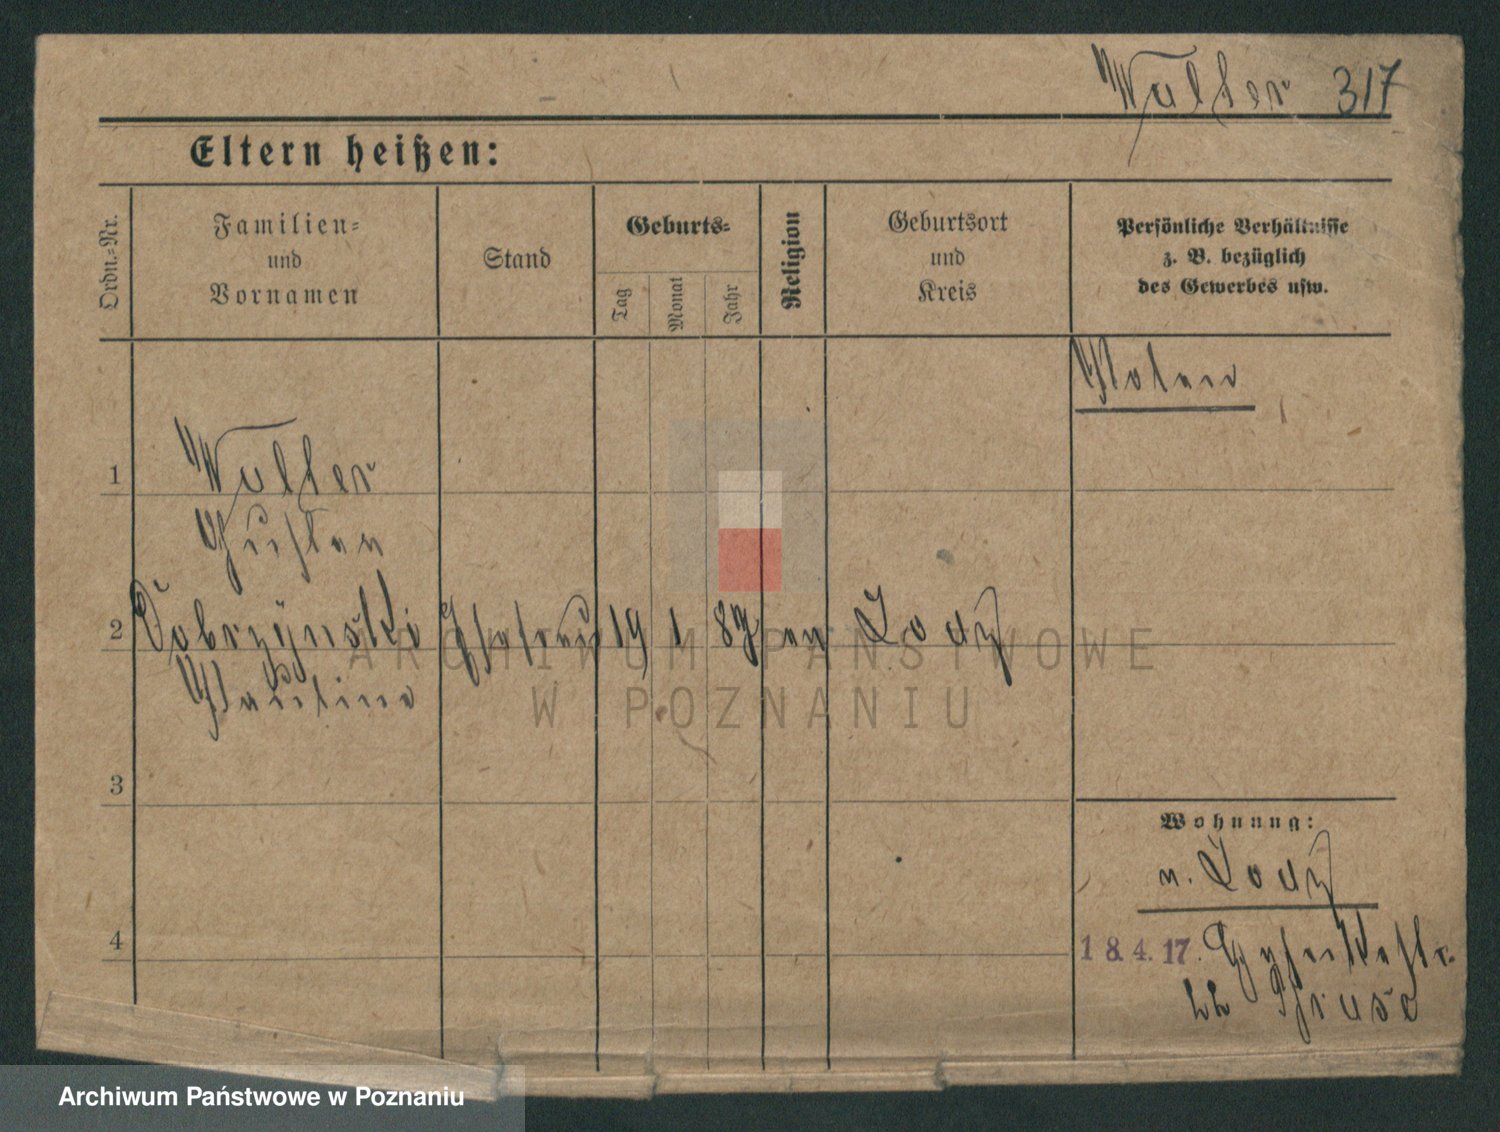 Walter 317
Eltern heißen:
Ordn.-Nr.
Familien-
und
Vornamen
Stand
Geburts-
Tag
Monat
Jahr
Religion
Geburtsort
und
Kreis
Persönliche Verhältnisse
z. B. bezüglich
des Gewerbes usw.
Polen
1 Walter
Gustav
2 Dobrzynski Ehefrau 19 1 89 ev Lodz
Pauline
3
Wohnung:
n. Lodz
4
18.4.17.
22
ARCHIWUM PAŃSTWOWE
W POZNANIU
Archiwum Państwowe w Poznaniu